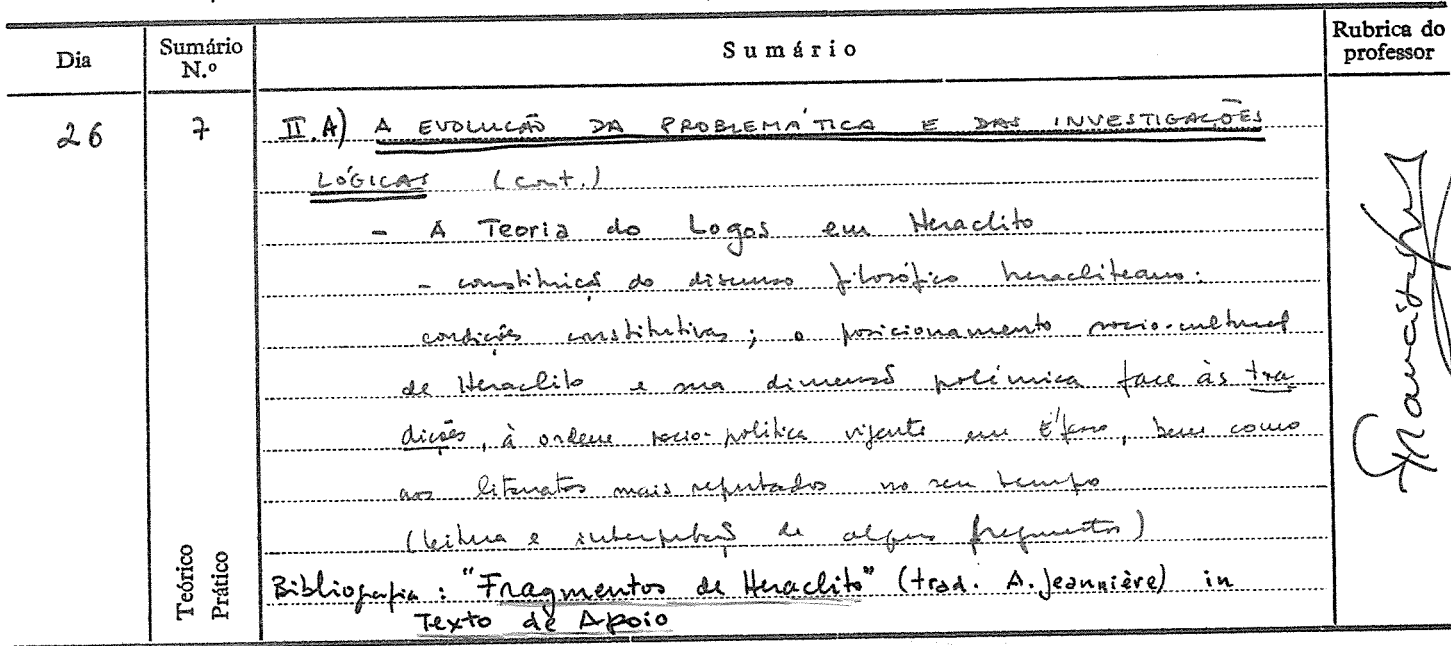 Dia
Sumário N.º
Sumário
Rubrica do professor
26
7
II. A) A EVOLUÇÃO DA PROBLEMÁTICA E DAS INVESTIGAÇÕES
LÓGICAS (cont.)
- A Teoria do Logos em Heraclito
- constituição do discurso filosófico heracliteano:
condições constitutivas; o posicionamento socio-cultural
de Heraclito e sua dimensão polémica face às tra
dições, à ordem socio-política vigente em Éfeso, bem como
aos literatos mais reputados no seu tempo
(leitura e interpretação de alguns fragmentos)
Teórico
Prático
Bibliografia: "Fragmentos de Heraclito" (trad. A. Jeannière) in
Texto de Apoio